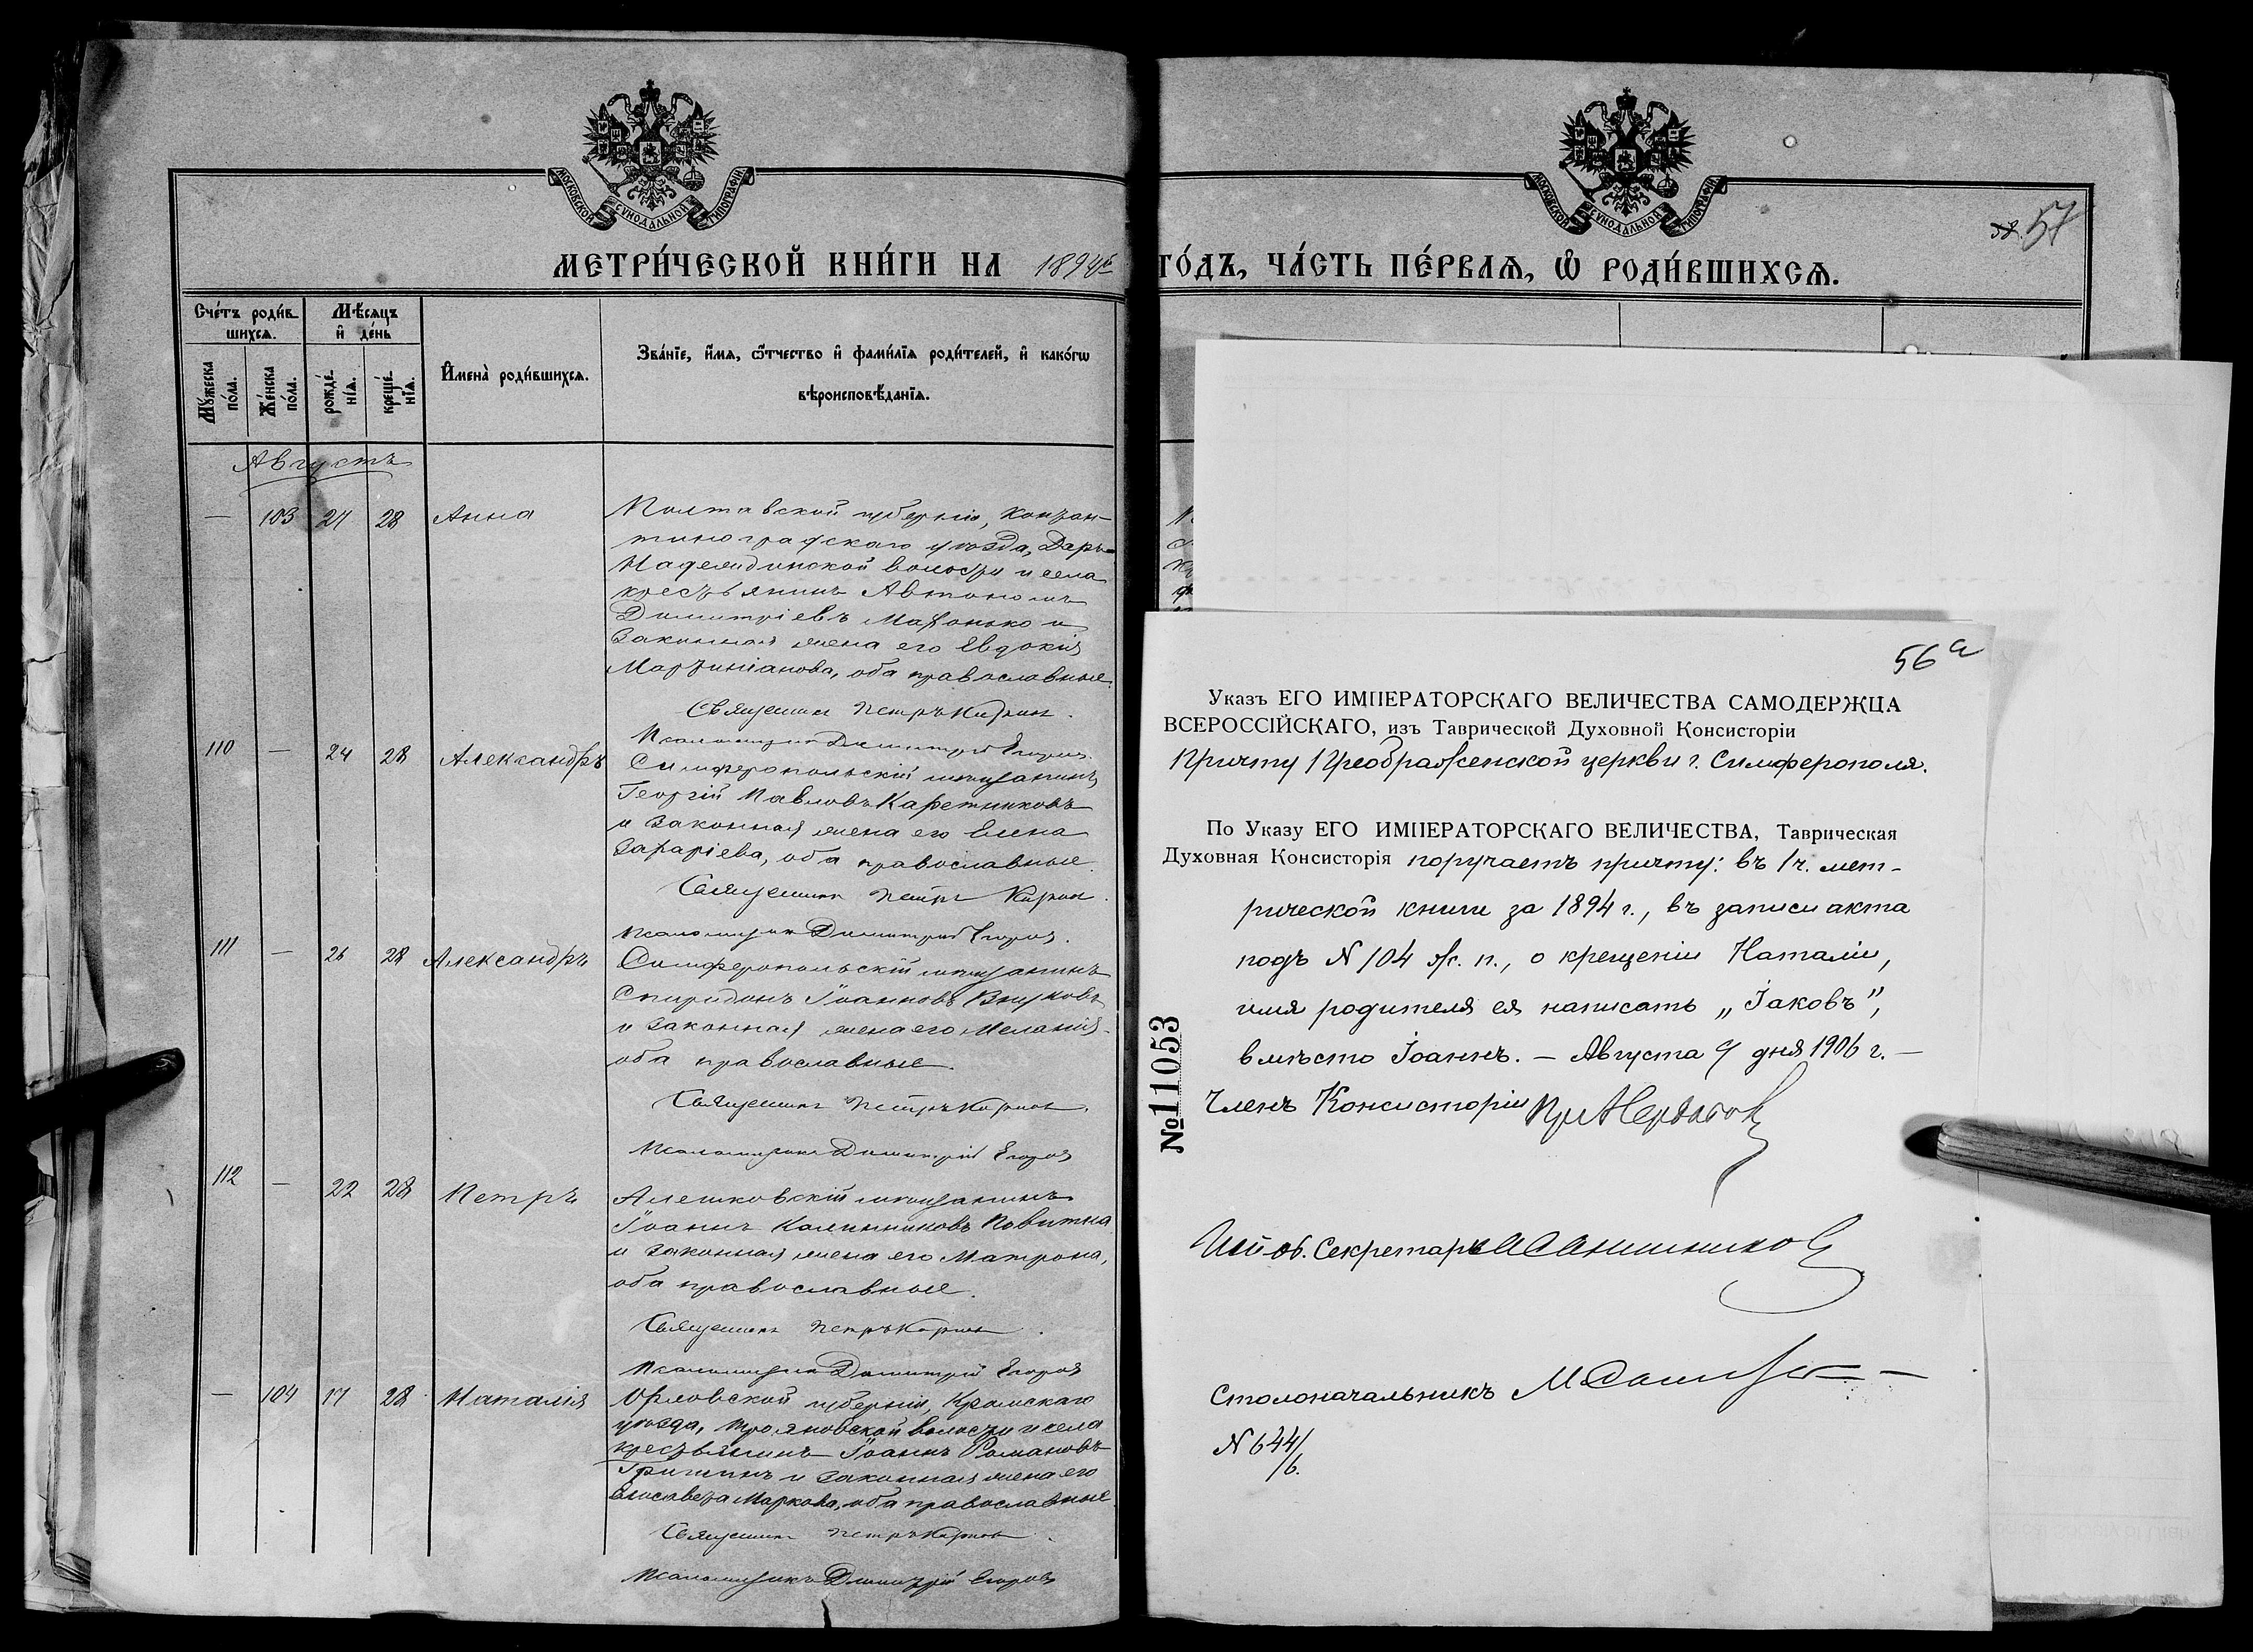 МОСКОВСКОЙ СУНОДАЛЬНОЙ ТИПОГРАФІИ
МЕТРИ́ЧЕСКОЙ КНИ́ГИ НА 1894й
Сче́тъ роди́в
шихсѧ.
Мѣ́сѧцъ
и҆ де́нь
Мꙋ́жеска
по́ла.
Же́нска
по́ла.
рожде́
нїѧ.
креще́
нїѧ.
И҆мена̀ роди́вшихсѧ.
Зва́нїе, и҆́мѧ, ѻ҆́тчество и҆ фами́лїѧ роди́телей, и҆ како́гѡ
вѣроисповѣ́данїѧ.
Августъ
— 103 27 28 Анна
Полтавской губерніи, Констан-
тиноградскаго уѣзда, Даръ-
Надеждинской волости и села
крестьянинъ Автономъ
Димитріевъ и
законная жена его Евдокія
Мартиніанова, оба православные.
Священникъ Петръ
Псаломщикъ Димитрій Егоров
110 — 24 28 Александръ
Симферопольскій мѣщанинъ
Георгій Павловъ Каретниковъ
и законная жена его Елена
Захаріева, оба православные.
Священникъ Петръ
Псаломщикъ Димитрій Егоров.
111 — 26 28 Александръ
Симферопольскій мѣщанинъ
Спиридонъ Іоанновъ Внуковъ
и законная жена его Меланія
оба православные.
Священникъ Петръ
Псаломщикъ Димитрій Егоров
112 — 22 28 Петръ
Алешковскій мѣщанинъ
Іоаннъ Калинниковъ
и законная жена его Матрона,
оба православные.
Священникъ Петръ
Псаломщикъ Димитрій Егоров
— 104 17 28 Наталія
Орловской губерніи, Кромскаго
уѣзда, Трояновской волости и села
крестьянинъ Іоаннъ Романовъ
Гришинъ и законная жена его
Елисавета Маркова, оба православные
Священникъ Петръ
Псаломщикъ Димитрій Егоровъ
МОСКОВСКОЙ СУНОДАЛЬНОЙ ТИПОГРАФІИ
57
ГО́ДЪ, ЧА́СТЬ ПЕ́РВАѦ, Ѡ҆ РОДИ́ВШИХСѦ.
56а
Указъ ЕГО ИМПЕРАТОРСКАГО ВЕЛИЧЕСТВА САМОДЕРЖЦА
ВСЕРОССІЙСКАГО, изъ Таврической Духовной Консисторіи
Причту Преображенской церкви г. Симферополя.
По Указу ЕГО ИМПЕРАТОРСКАГО ВЕЛИЧЕСТВА, Таврическая
Духовная Консисторія поручаетъ причту: въ 1 ч. мет-
рической книги за 1894 г., въ записи акта
подъ N 104 ж. п., о крещеніи Наталіи,
имя родителя ея написать „Іаковъ",
вмѣсто Іоаннъ. — Августа 9 дня 1906 г. —
Членъ Консисторіи
Секретарь
Столоначальникъ
N 644/
/6.
№11053